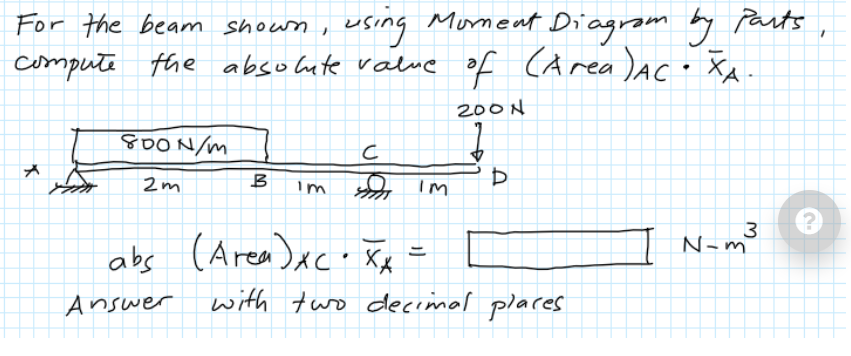 For the beam shown, using Moment Diagram by Parts,
compute the absolute value of (Area)AC · X̄A.
200N
800 N/m
C
A
2m
B
1m
1m
D
?
abs (Area)AC · X̄A =
N-m³
Answer with two decimal places